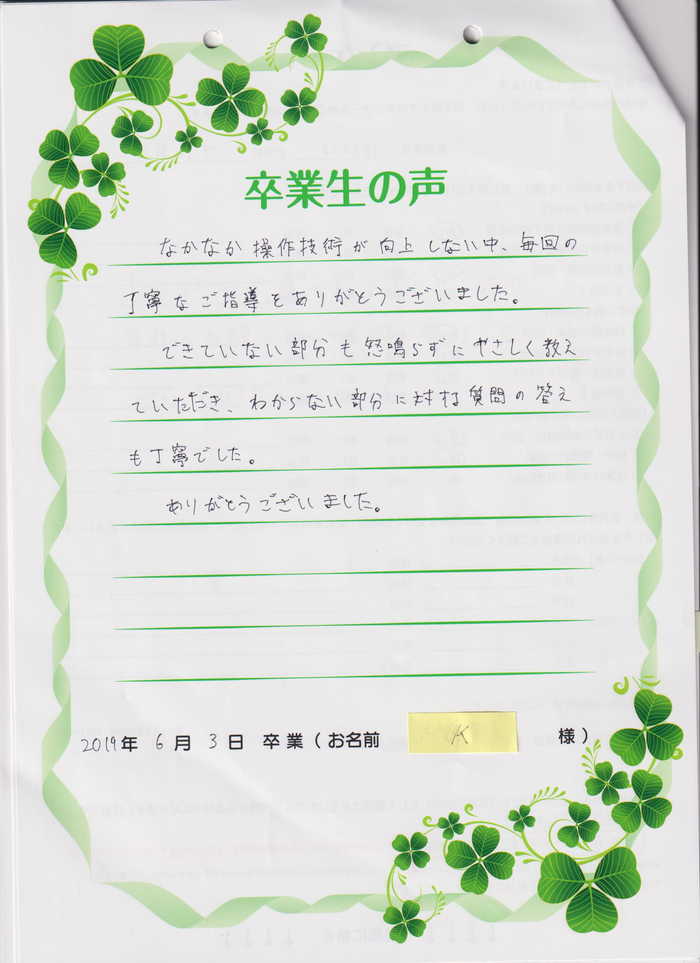 卒業生の声
なかなか操作技術が向上しない中、毎回の
丁寧なご指導をありがとうございました。
できていない部分も怒鳴らずにやさしく教え
ていただき、わからない部分に対する質問の答え
も丁寧でした。
ありがとうございました。
2019年 6月 3日 卒業(お名前 K 様)